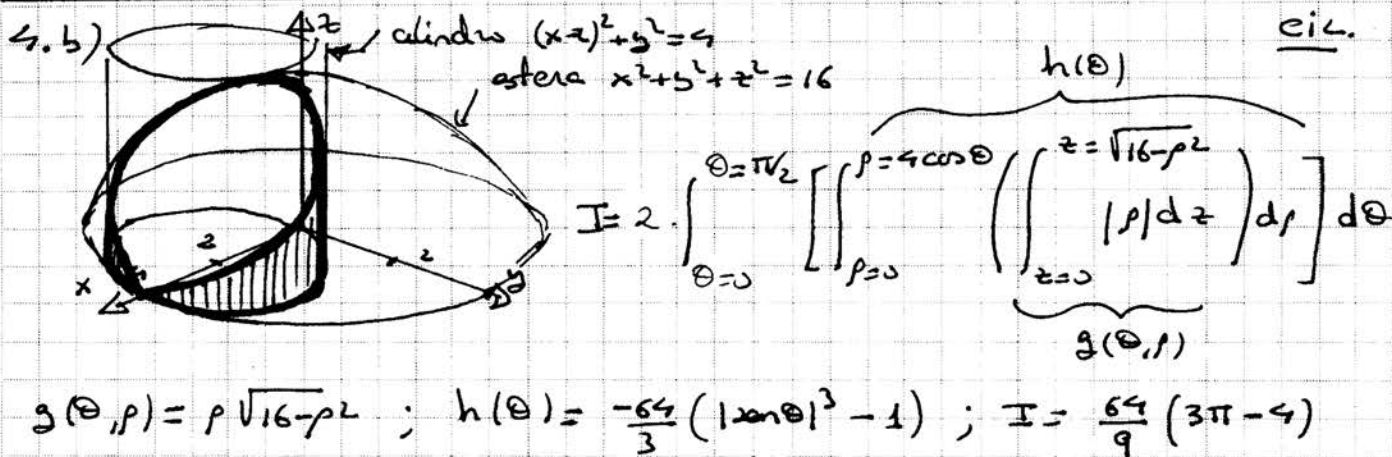 4.b) z cilindro (x-2)²+y²=4 cil.
esfera x²+y²+z²=16
h(θ)
I= 2 · ∫_{θ=0}^{θ=π/2} [ ∫_{ρ=0}^{ρ=4cosθ} ( ∫_{z=0}^{z=√(16-ρ²)} |ρ| dz ) dρ ] dθ
2 2
x y
g(θ,ρ)
g(θ,ρ) = ρ √(16-ρ²) ; h(θ) = -64/3 (|senθ|³ - 1) ; I = 64/9 (3π-4)